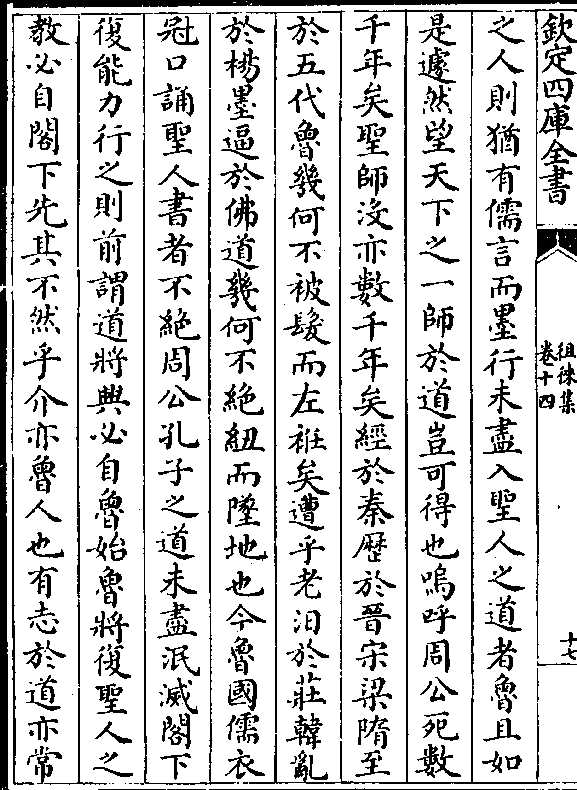 欽定四庫全書
徂徠集
卷十四
十七
之人則猶有儒言而墨行未盡入聖人之道者魯且如
是遽然望天下之一師於道豈可得也嗚呼周公死數
千年矣聖師沒亦數千年矣經於秦歷於晉宋梁隋至
於五代魯幾何不被髮而左袵矣遭乎老汨於莊韓亂
於楊墨逼於佛道幾何不絶紐而墜地也今魯國儒衣
冠口誦聖人書者不絶周公孔子之道未盡泯滅閣下
復能力行之則前謂道將興必自魯始魯將復聖人之
教必自閣下先其不然乎介亦魯人也有志於道亦常